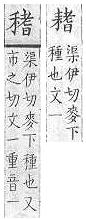 渠伊切麥下
種也文一
渠伊切麥下種也又
市之切文一重音一